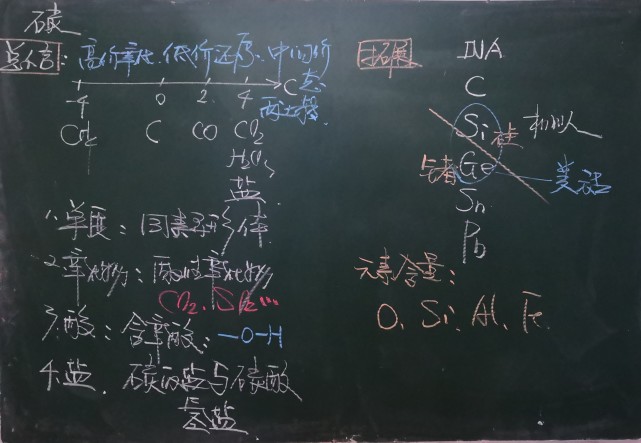 碳
总结：高价氧化.低价还原.中间价态两边转
C
-4 0 2 4
CH4 C CO CO2
H2CO3
盐
1.单质：同素异形体
2.氧化物：酸性氧化物
CO2、SiO2…
3.酸：含氧酸：-O-H
4.盐.碳酸盐与碳酸
氢盐
拓展 IVA
C
Si 硅 机器人
Ge 类硅
Sn
Pb
元素含量：
O、Si、Al、Fe